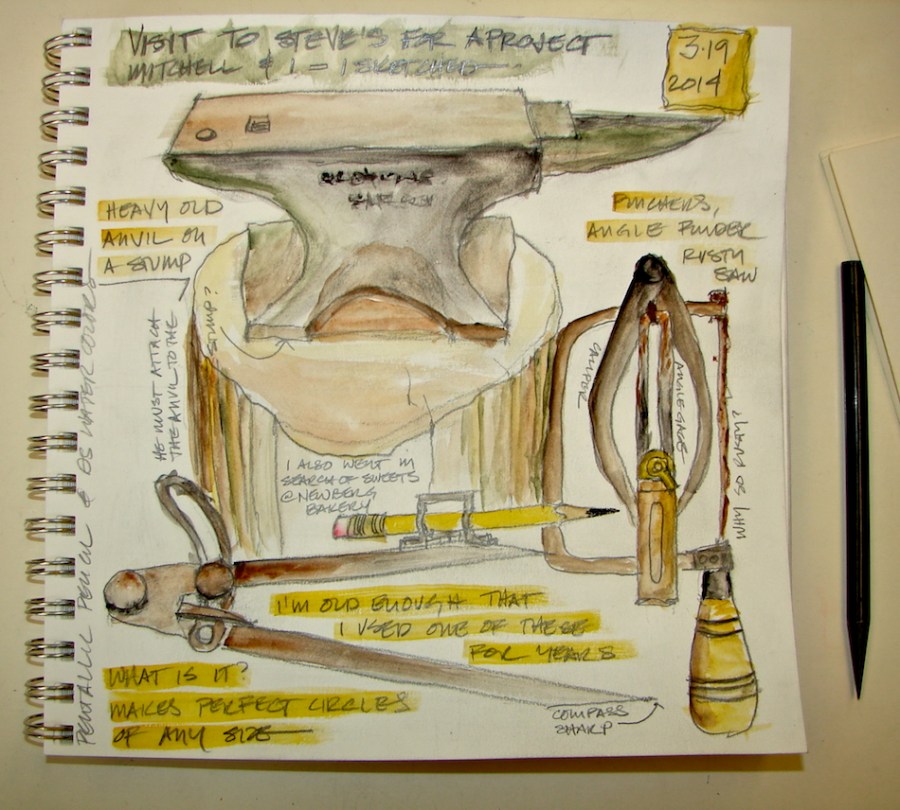 VISIT TO STEVE'S FOR A PROJECT
MITCHELL & I - I SKETCHED
3.19
2014
HEAVY OLD
ANVIL ON
A STUMP
PINCHERS,
ANGLE FINDER
RUSTY
SAW
STUMP?
HE MUST ATTACH
THE ANVIL TO THE
CALIPER
ANGLE GAGE
WHY SO RUSTY?
I ALSO WENT IN
SEARCH OF SWEETS
@ NEWBERG
BAKERY
I'M OLD ENOUGH THAT
I USED ONE OF THESE
FOR YEARS
WHAT IS IT?
MAKES PERFECT CIRCLES
OF ANY SIZE
COMPASS
SHARP
PENTALIC PENCIL & DS WATER COLORS